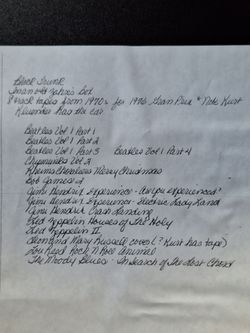 Black Trunk
Inan old Yahni's Box
8 track tapes from 1970's for 1976 Gran Prix * Note Kurt
Kluender has the car.
Beatles Vol 1 Part 1
Beatles Vol 1 Part 2
Beatles Vol 1 Part 3 Beatles Vol 1 Part 4
Chipmunks Vol 2
Merry Christmas
Bob James 2
Jimi Hendrix Experience - Are you experienced?
Jimi Hendrix Experience - Electric Lady Land
Jimi Hendrix Crash Landing
Led Zeppelin Houses of The Holy
Led Zeppelin II
Leon and Mary Russell cover (? Kurt has tape)
Lou Reed Rock N Roll Animal
The Moody Blues - In Search of The Lost Chord